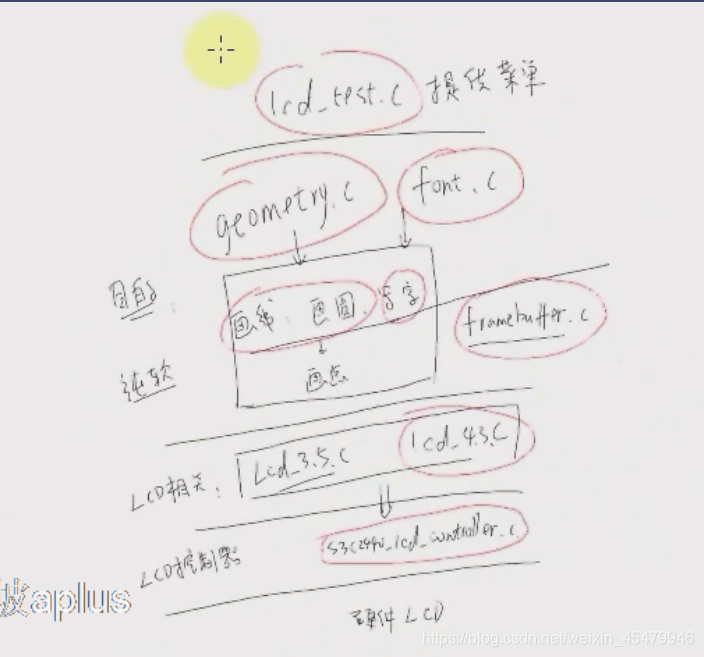 lcd_test.c 提供菜单
geometry.c font.c
目的:
画线、画圆、写字
framebuffer.c
纯软
画点
LCD相关: Lcd_3.5.c lcd_4.3.c
LCD控制器 S3C2440_lcd_controller.c
aplus
硬件LCD
https://blog.csdn.net/weixin_45479946